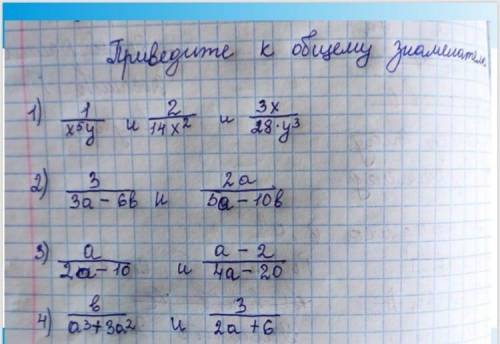 Приведите к общему знаменателю.
1) 1/x⁵y и 2/14x² и 3x/28·y³
2) 3/3a-6в и 2a/5a-10в
3) a/2a-10 и a-2/4a-20
4) в/a³+3a² и 3/2a+6